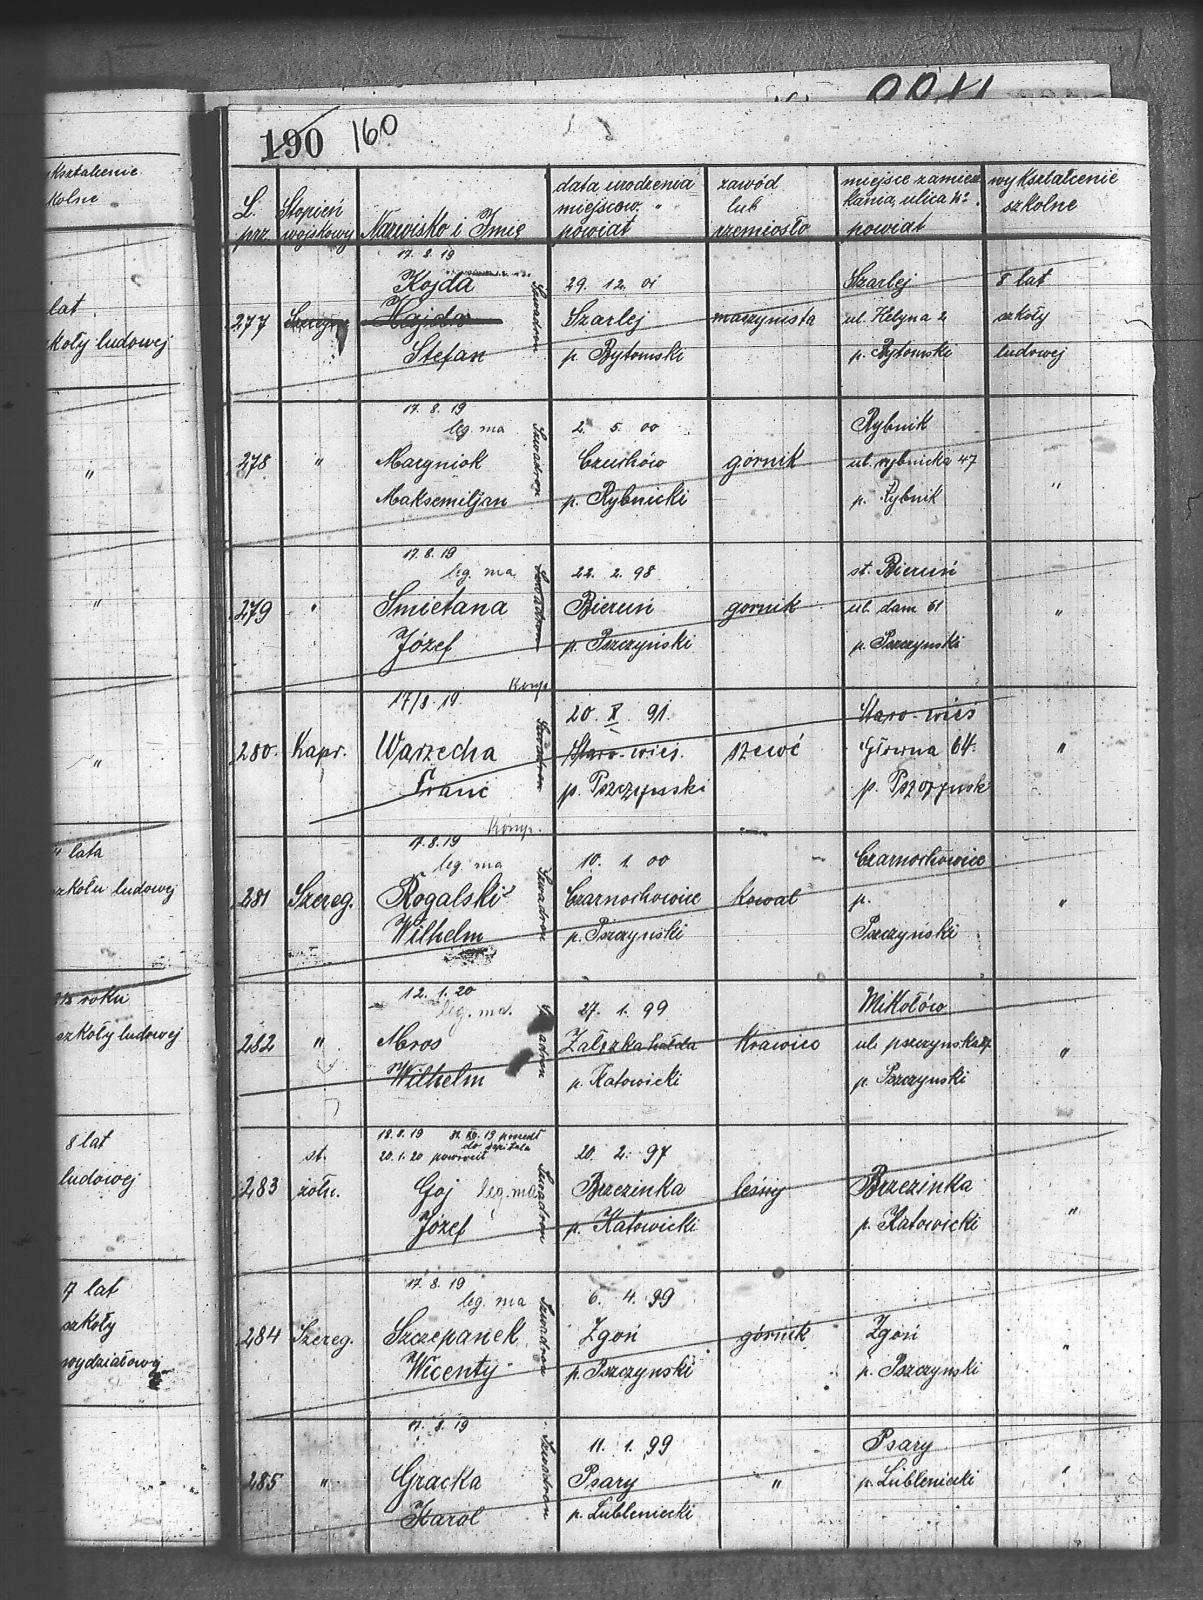 kształcenie
kolne
lat
koły ludowej
"
"
"
4 lata
szkołu ludowej
roku
szkoły ludowej
8 lat
ludowej
7 lat
szkoły
wydziałowy
190 160
L. prz. Stopień wojskowy Nazwisko i Imię data urodzenia miejscow. " powiat zawód lub rzemiosło miejsce zamiesz kania, ulica №. powiat wykształcenie szkolne
17. 8. 19
Kojda 29. 12. 01 Szarlej 8 lat
277 Szereg. Kajda Szwadron Szarlej maszynista ul. Helyna 2 szkoły
Stefan p. Bytomski p. Bytomski ludowej
17. 8. 19
leg. ma 2. 5. 00 Rybnik
278 " Margniok Szwadron Czuchów górnik ul. rybnicka 47 "
Maksemiljan p. Rybnicki p. Rybnik
17. 8. 19
leg. ma 22. 2. 98 st. Bieruń
279 " Smietana Szwadron Bieruń gornik ul. dam 61 "
Józef p. Pszczyński p. Pszczyński
17/8. 19.
20. X. 91. Staro-wieś
280. Kapr. Warzecha Szwadron Staro-wieś. szewć Główna 64. "
Franc p. Pszczynski p. Pszczynsk
17. 8. 19
leg. ma 10. 1. 00 Czarnochowice
281 Szereg. Rogalski Szwadron Czarnochowice kowal p. "
Wilhelm p. Pszczyński Pszczyński
12. 1. 20
leg. ma. 27. 1. 99 Mikołów
282 " Mros Szwadron Załęzka hałda Krawiec ul. pszczynska "
Wilhelm p. Katowicki p. Pszczynski
18. 8. 19 31. XII. 19 poszedł
do szpitala
20. 1. 20 powrócił
st. 20. 2. 97
283 żołn. Goj leg. ma Szwadron Brzezinka leśny Brzezinka "
Józef p. Katowicki p. Katowicki
17. 8. 19
leg. ma 6. 4. 99
284 Szereg. Szczepanek Szwadron Zgoń górnik Zgoń "
Wicenty p. Pszczyński p. Pszczynski
17. 8. 19
11. 1. 99 Psary
285 " Gracka Szwadron Psary " p. Lubleniecki "
Karol p. Lubleniecki